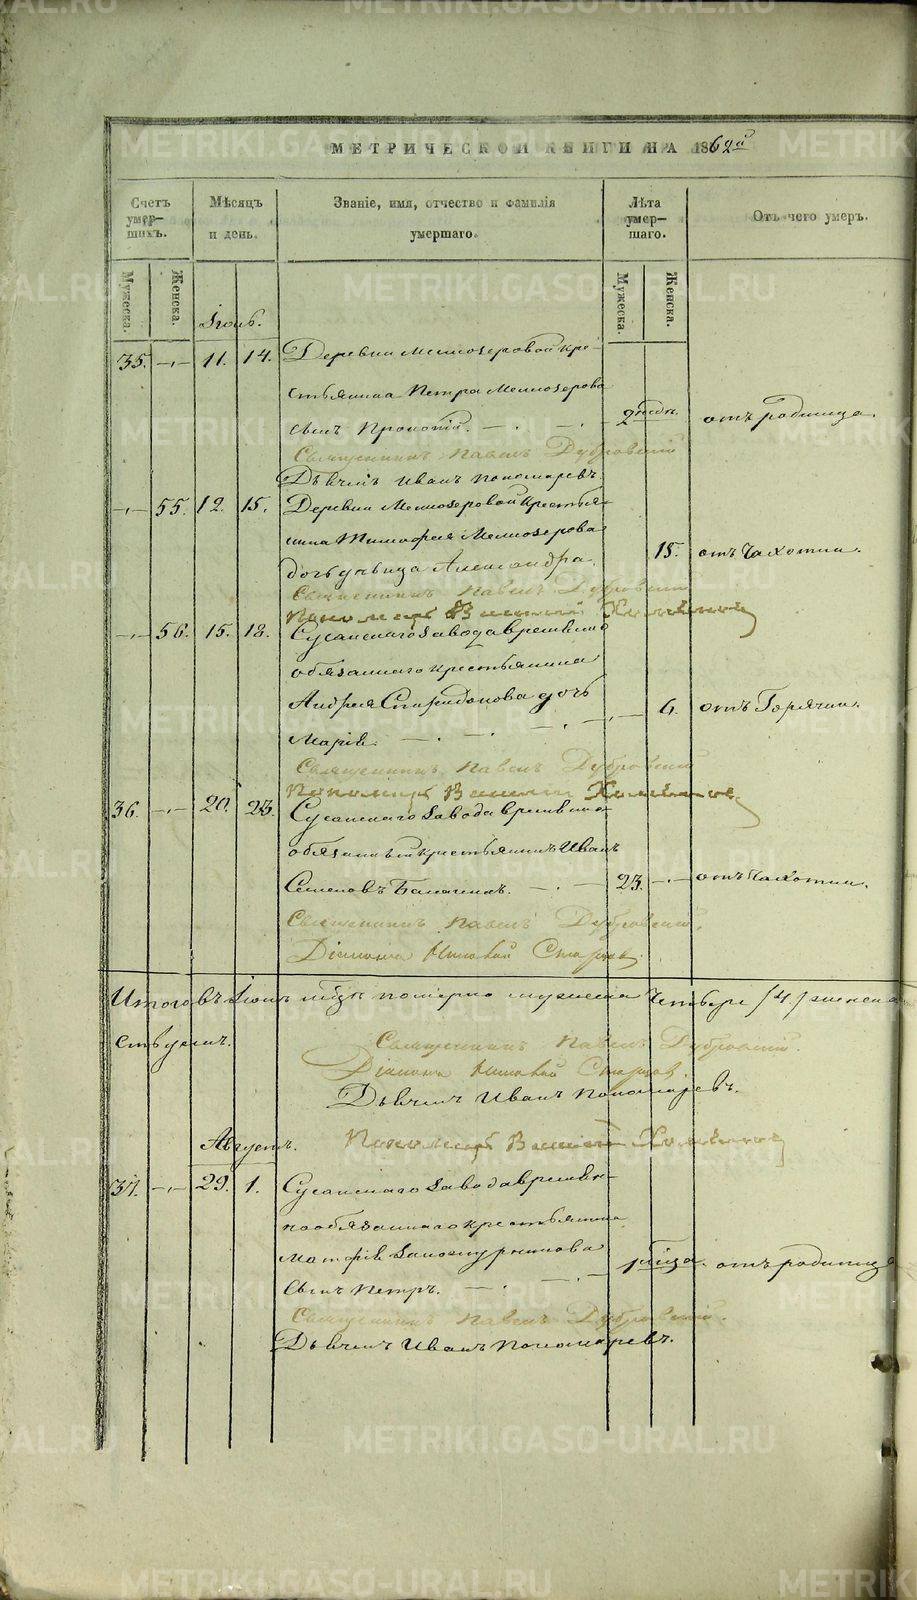 МЕТРИЧЕСКОЙ КНИГИ НА 1862й
Счетъ умер- шихъ.
Мѣсяцъ и день.
Званіе, имя, отчество и фамилія умершаго.
Лѣта умер- шаго.
Отъ чего умеръ.
Мужеска.
Женска.
Мужеска.
Женска.
35. 11. 14. Деревни Мелкозеровой кре-
стьянина Петра Мелкозерова
сынъ Прокопій. 2 нед. отъ родимца.
Священникъ Павелъ Дубровскій
Дьячекъ Иванъ Пономаревъ.
55. 12. 15. Деревни Мелкозеровой крестья-
нина Тимофея Мелкозерова
дочь девица Александра. 18. отъ чахотки.
Священникъ Павелъ Дубровскій
Пономарь
56. 15. 18. Сусанскаго завода временно
обязаннаго крестьянина
Андрея Спиридонова дочь
Марія. 6. отъ Горячки.
Священникъ Павелъ Дубровскій
Пономарь
36. 20. 23. Сусанскаго завода временно
обязанный крестьянинъ Иванъ
Семеновъ 23. отъ чахотки.
Священникъ Павелъ Дубровскій.
Діаконъ Николай
Итого въ Іюлѣ мцѣ померло мужеска четыре /4/ женска
Священникъ Павелъ Дубровскій.
Діаконъ Николай
Дьячекъ Иванъ Пономаревъ.
Пономарь
Августъ.
37. 29. 1. Сусанскаго завода времен-
нообязаннаго крестьянина
сынъ Петръ. 1 мца. отъ родимца
Священникъ Павелъ Дубровскій.
Дьячекъ Иванъ Пономаревъ.
METRIKI.GASO-URAL.RU